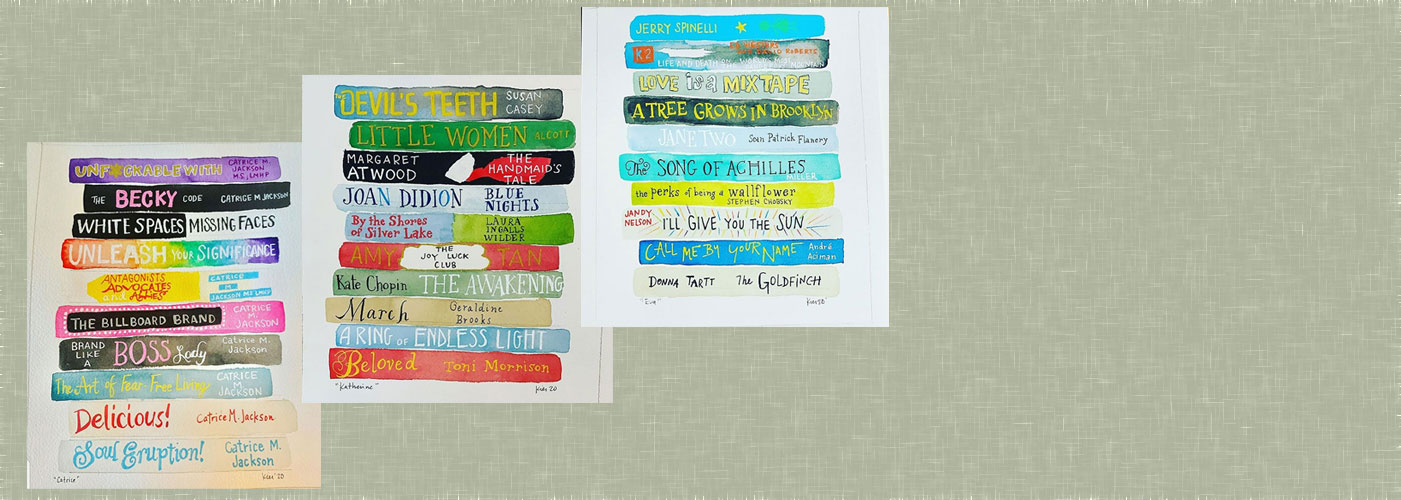 UNF*CKABLE WITH
CATRICE M.
JACKSON
MS, LMHP
THE BECKY CODE CATRICE M JACKSON
WHITE SPACES MISSING FACES
UNLEASH YOUR SIGNIFICANCE
ANTAGONISTS
ADVOCATES
and ALLIES
CATRICE
M
JACKSON MS LMHP
THE BILLBOARD BRAND
CATRICE
M.
JACKSON
BRAND
LIKE
A
BOSS Lady
Catrice M.
Jackson
The Art of Fear-Free Living
CATRICE
M
JACKSON
Delicious! Catrice M. Jackson
Soul Eruption!
Catrice M.
Jackson
"Catrice"
'20
THE DEVIL'S TEETH
SUSAN
CASEY
LITTLE WOMEN ALCOTT
MARGARET
ATWOOD
THE
HANDMAID'S
TALE
JOAN DIDION
BLUE
NIGHTS
By the Shores
of Silver Lake
LAURA
INGALLS
WILDER
AMY TAN
THE
JOY LUCK
CLUB
Kate Chopin THE AWAKENING
March
Geraldine
Brooks
A RING OF ENDLESS LIGHT
Beloved Toni Morrison
"Katherine"
20
JERRY SPINELLI
K2
DAVID ROBERTS
LIFE AND DEATH ON THE WORLD'S MOST
MOUNTAIN
LOVE is a MIXTAPE
A TREE GROWS IN BROOKLYN
JANE TWO Sean Patrick Flanery
The SONG OF ACHILLES
MILLER
the perks of being a wallflower
STEPHEN CHBOSKY
JANDY
NELSON
I'LL GIVE YOU THE SUN
CALL ME BY YOUR NAME
André
Aciman
DONNA TARTT The GOLDFINCH
"Eve"
20